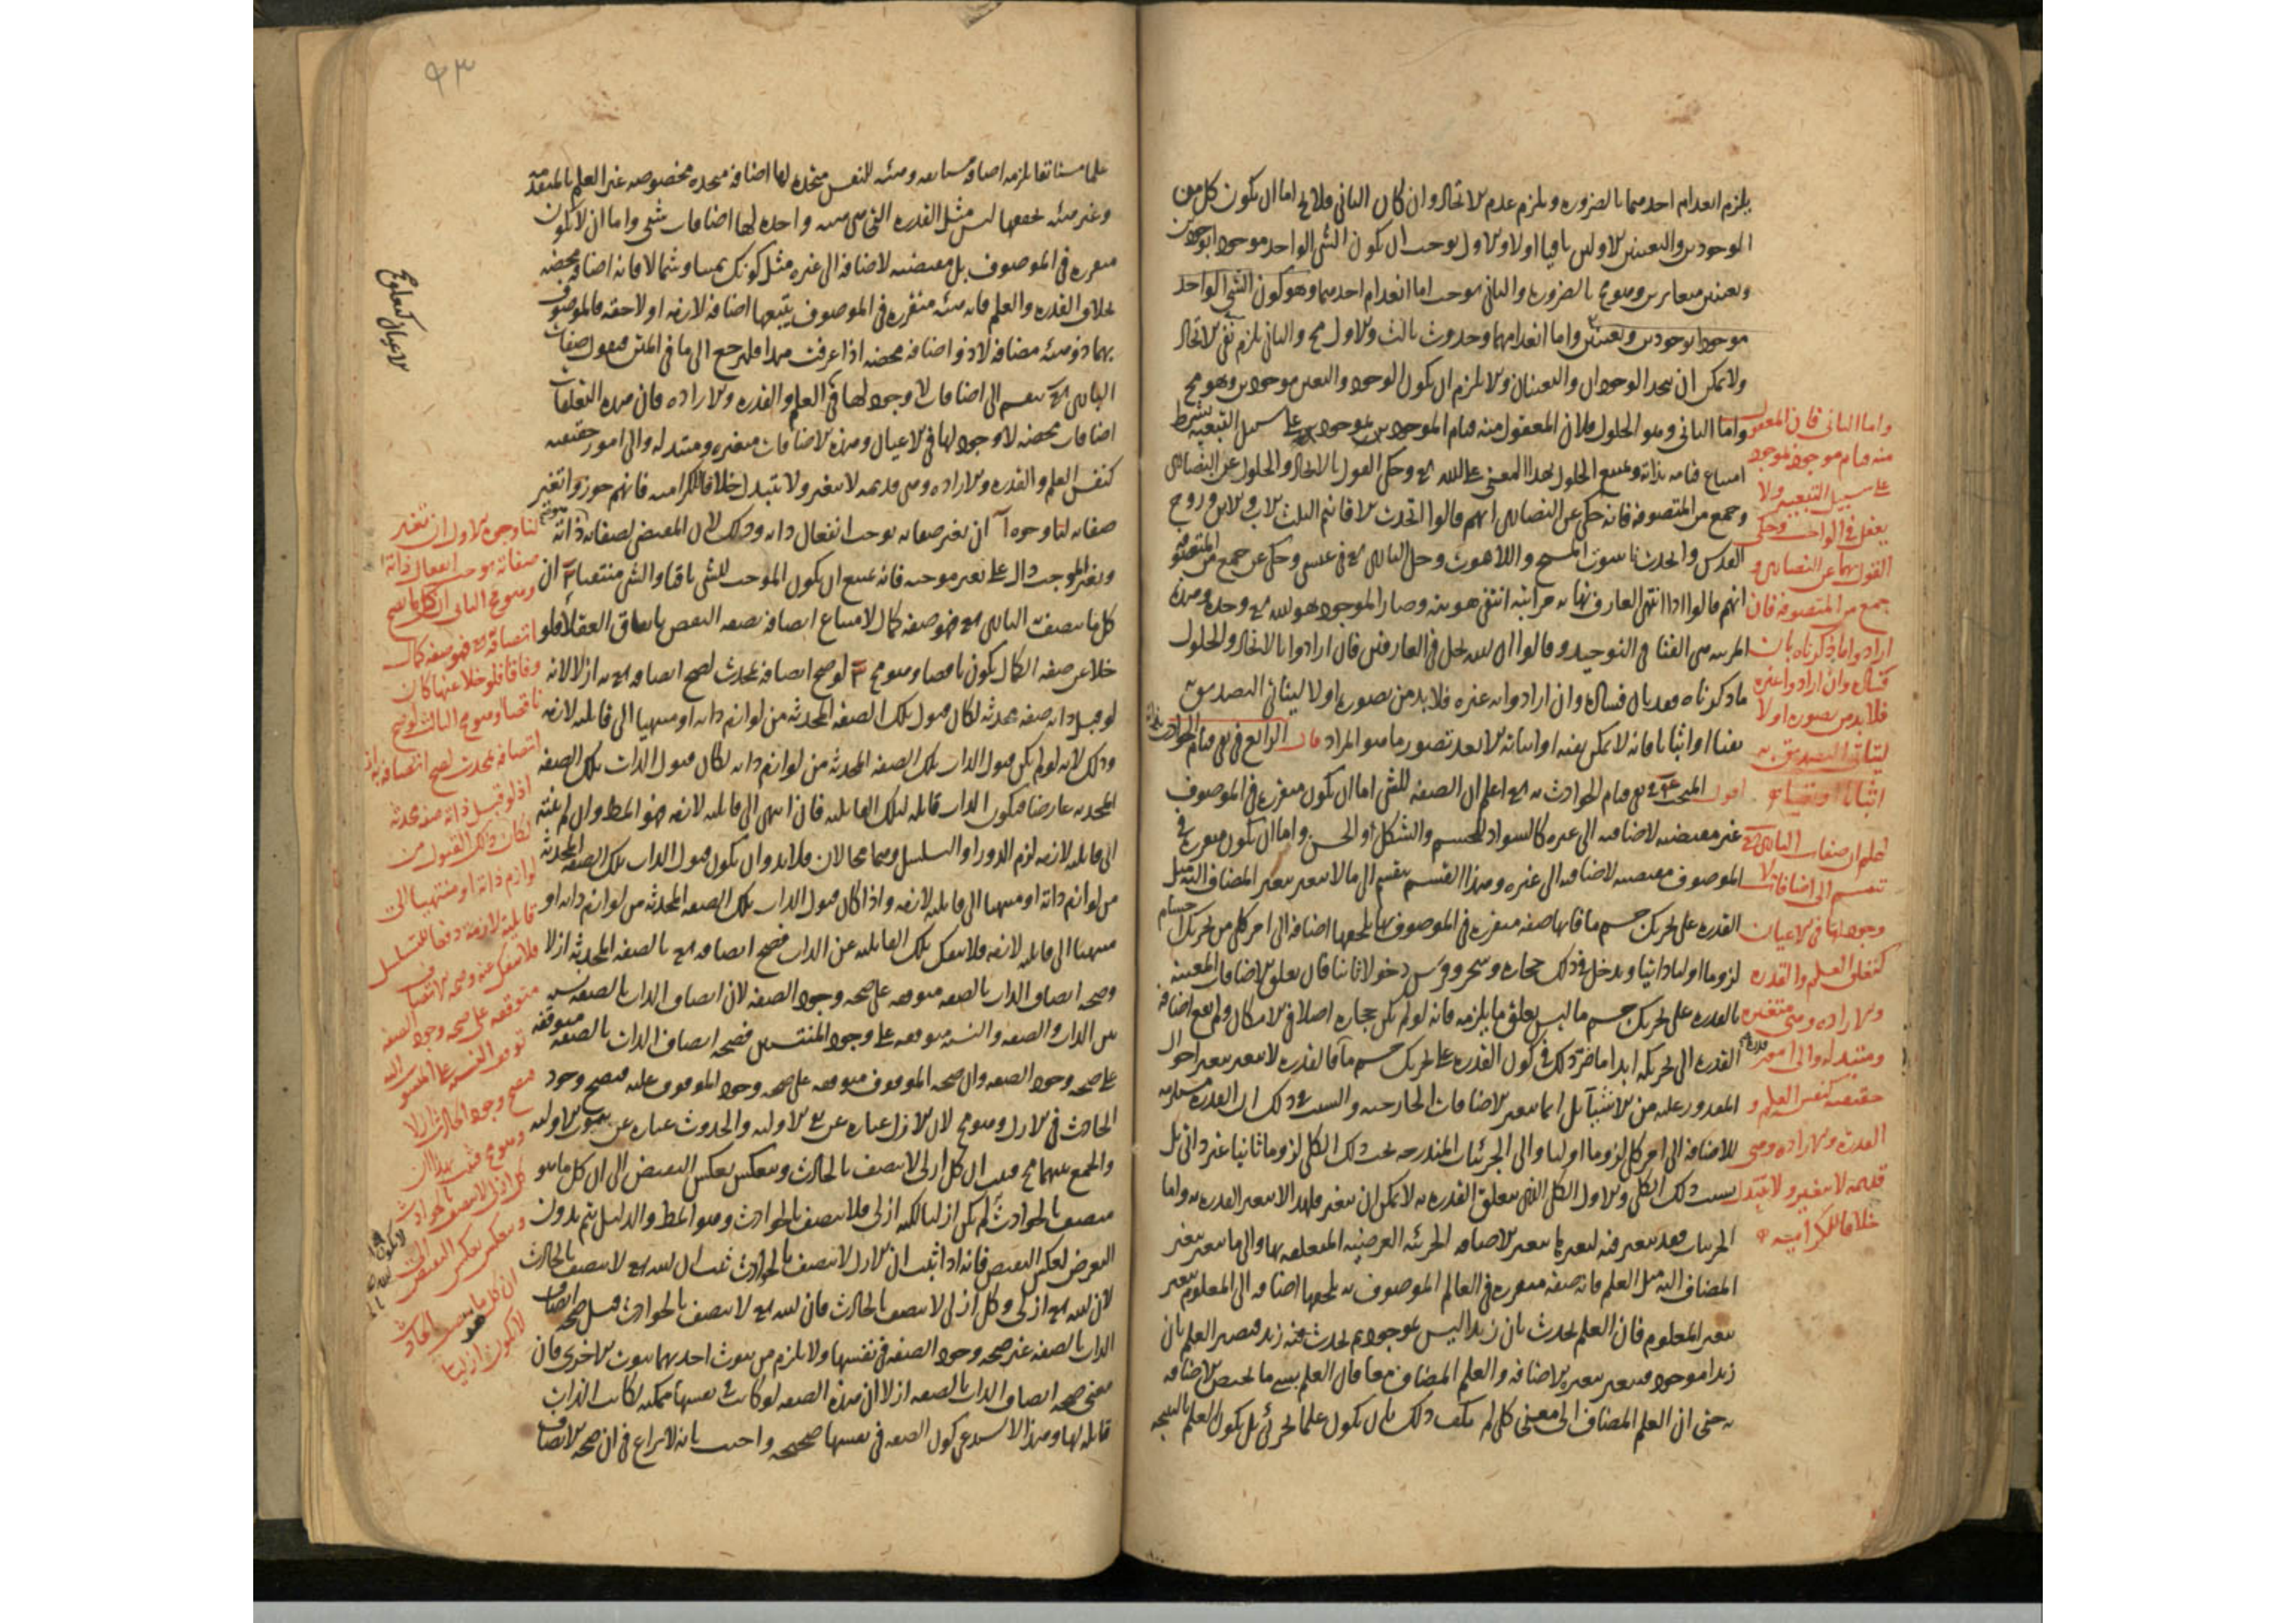 يلزم انعدام احدهما بالضرورة ويلزم عدم الاتحاد وان كان الثانى فلا يخ اما ان يكون كل من
الموجودين والتعينين الاولين باقيا اولا والاول يوجب ان يكون الشى الواحد موجودا بوجودين
وتعينين متغايرين وهو مح بالضرورة والثانى يوجب اما انعدام احدهما وهو كون الشى الواحد
موجودا بوجودين وتعينين واما انعدامهما وحدوث ثالث والاول مح والثانى يلزم نفى الاتحاد
ولا يمكن ان يتحد الوجودان والتعينان والا يلزم ان يكون الوجود والتعين موجودين وهو مح
واما الثانى وهو الحلول فلان المعقول منه قيام الموجود بموجود على سبيل التبعية بشرط
امتناع قيامه بذاته ويمتنع الحلول بهذا المعنى على الله تع وحكى القول بالاتحاد والحلول عن النصارى
وجمع من المتصوفة فانه حكى عن النصارى انهم قالوا اتحدت الاقانيم الثلث الاب والابن وروح
القدس واتحدت ناسوت المسيح واللاهوت وحل البارى تع فى عيسى وحكى عن جمع من المتصوفة
انهم قالوا اذا انتهى العارف نهاية مراتبه انتفى هويته وصار الموجود هو الله تع وحده وهذه
المرتبة هى الفنا فى التوحيد وقالوا ان الله يحل فى العارفين فان ارادوا بالاتحاد والحلول
ما ذكرناه فقد بان فساده وان ارادوا به غيره فلا بد من تصوره اولا ليتاتى التصديق به
نفيا او اثباتا فانه لا يمكن نفيه او اثباته الا بعد تصور ما هو المراد قال الرابع فى نفى قيام الحوادث بذاته
اقول المبحث فى نفى قيام الحوادث به تع اعلم ان الصفة للشى اما ان يكون متقررة فى الموصوف
غير مقتضية لاضافته الى غيره كالسواد للجسم والشكل او الحسن واما ان يكون متقررة فى
الموصوف مقتضية لاضافته الى غيره وهذا القسم ينقسم الى ما لا يتغير بتغير المضاف اليه مثل
القدرة على تحريك جسم ما فانها صفة متقررة فى الموصوف بها يلحقها اضافة الى امر كلى من تحريك اجسام
لزوما اوليا ذاتيا ويدخل فى ذلك حجارة وشجر وفرس دخولا ثانيا فان تعلق الاضافات المعينة
بالقدرة على تحريك جسم ما ليس تعلق ما يلزمه فانه لو لم يكن حجارة اصلا فى الامكان ولم يقع اضافة
القدرة الى تحريكه ابدا ما ضر ذلك فى كون القدرة على تحريك جسم ما فالقدرة لا يتغير بتغير احوال
المقدور عليه من الاشيا بل انما يتغير الاضافات الخارجية والسبب فى ذلك ان القدرة مستلزمة
للاضافة الى امر كلى لزوما اوليا والى الجزئيات المندرجة تحت ذلك الكلى لزوما ثانيا غير ذاتى بل
بسبب ذلك الكلى والاول الكلى الذى يتعلق القدرة به لا يمكن ان يتغير فلهذا لا يتغير القدرة به واما
الجزئيات فقد يتغير فيه لتغيرها يتغير الاضافة الجزئية العرضية المتعلقة بها والى ما يتغير بتغير
المضاف اليه مثل العلم فانه صفة متقررة فى العالم الموصوف به يلحقها اضافة الى المعلوم يتغير
بتغير المعلوم فان العلم يحدث بان زيدا ليس بموجود ثم يحدث فيه زيد فيصير العلم بان
زيدا موجود فيتغير بتغيره الاضافة والعلم المضاف معا فان العلم بشى ما يختص الاضافة
به حتى ان العلم المضاف الى معنى كلى لم يكف ذلك بان يكون علما بجزئى بل يكون العلم بالنتيجة
واما الثانى فان المعقول
منه قيام موجود بموجود
على سبيل التبعية ولا
يعقل فى الواجب وحكى
القول بهما عن النصارى و
جمع من المتصوفة فان
ارادوا ما ذكرناه بان
فساده وان ارادوا غيره
فلا بد من تصوره اولا
ليتاتى التصديق به
اثباتا او نفيا
اعلم ان صفات البارى تع
تنقسم الى اضافات لا
وجود لها فى الاعيان
كتعلق العلم والقدرة
والارادة وهى متغيرة
ومتبدلة والى امور
حقيقية كنفس العلم و
القدرة والارادة وهى
قديمة لا يتغير ولا يتبدل
خلافا للكرامية
٩٣
علما مستانفا يلزمه اضافة مستانفة وهيئة للنفس متجددة لها اضافة متجددة مخصوصة غير العلم بالمقدمة
وغير هيئة تحققها ليس مثل القدرة التى هى هيئة واحدة لها اضافات شتى واما ان لا يكون
متقررة فى الموصوف بل مقتضية لاضافة الى غيره مثل كونك يمينا وشمالا فانه اضافة محضة
بخلاف القدرة والعلم فانه هيئة متقررة فى الموصوف يتبعها اضافة لازمة او لاحقة فالموصوف
بهما ذو هيئة مضافة لا ذو اضافة محضة اذا عرفت هذا فلنرجع الى ما فى المتن فنقول صفات
البارى تع ينقسم الى اضافات لا وجود لها كتعلق العلم والقدرة والارادة فان هذه التعلقات
اضافات محضة لا وجود لها فى الاعيان وهذه الاضافات متغيرة ومتبدلة والى امور حقيقية
كنفس العلم والقدرة والارادة وهى قديمة لا يتغير ولا يتبدل خلافا للكرامية فانهم جوزوا تغير
صفاته لنا وجوه آ ان تغير صفاته يوجب انفعال ذاته وذلك لان المقتضى لصفاته ذاته
وتغير الموجب دال على تغير موجبه فانه يمتنع ان يكون الموجب للشى باقيا والشى منتفيا ب ان
كل ما يتصف البارى تع به فهو صفة كمال لامتناع اتصافه بصفة النقص باتفاق العقلا فلو
خلا عن صفة الكمال يكون ناقصا وهو مح ج لو صح اتصافه بمحدث لصح اتصافه تع به ازلا لانه
لو قبل ذاته صفة محدثة لكان قبول تلك الصفة المحدثة من لوازم ذاته او منتهيا الى قابلية لازمة
وذلك لانه لو لم يكن قبول الذات تلك الصفة المحدثة من لوازم ذاته لكان قبول الذات تلك الصفة
المحدثة عارضا فيكون الذات قابلة لتلك القابلية فان انتهى الى قابلية لازمة فهو المط وان لم ينته
الى قابلية لازمة لزم الدور او التسلسل وهما محالان فلا بد وان يكون قبول الذات تلك الصفة المحدثة
من لوازم ذاته او منتهيا الى قابلية لازمة واذا كان قبول الذات تلك الصفة المحدثة من لوازم ذاته او
منتهيا الى قابلية لازمة فلا ينفك تلك القابلية عن الذات فصح اتصافه تع بالصفة المحدثة ازلا
وصحة اتصاف الذات بالصفة متوقفة على صحة وجود الصفة لان اتصاف الذات بالصفة نسبة
بين الذات والصفة والنسبة متوقفة على وجود المنتسبين فصحة اتصاف الذات بالصفة متوقفة
على صحة وجود الصفة وان صحة الموقوف متوقفة على صحة وجود الموقوف عليه فيصح وجود
الحادث فى الازل وهو مح لان الازل عبارة عن نفى الاولية والحدوث عبارة عن ثبوت الاولية
والجمع بينهما مح فثبت ان كل ازلى لا يتصف بالحادث وينعكس بعكس النقيض الى ان كل ما هو
متصف بالحوادث لم يكن ازليا لكنه ازلى فلا يتصف بالحوادث وهو المط والدليل يتم بدون
التعرض لعكس النقيض فانه اذا ثبت ان الازلى لا يتصف بالحوادث ثبت ان الله تع لا يتصف بالحادث
لان الله تع ازلى وكل ازلى لا يتصف بالحادث فان الله تع لا يتصف بالحوادث قيل صحة اتصاف
الذات بالصفة غير صحة وجود الصفة فى نفسها ولا يلزم من ثبوت احديهما ثبوت الاخرى فان
معنى صحة اتصاف الذات بالصفة ازلا ان هذه الصفة لو كانت فى نفسها ممكنة لكانت الذات
قابلة لها وهذا لا يستدعى كون الصفة فى نفسها صحيحة واجيب بانه لا نزاع فى ان صحة الاتصاف
لنا وجوه الاول ان تغير
صفاته يوجب انفعال ذاته
وهو مح الثانى ان كل ما صح
اتصافه به فهو صفة كمال
وفاقا فلو خلا عنها كان
ناقصا وهو مح الثالث لو صح
اتصافه بمحدث لصح اتصافه به
اذ لو قبل ذاته صفة محدثة
لكان ذلك القبول من
لوازم ذاته او منتهيا الى
قابلية لازمة دفعا للتسلسل
فلا ينفك عنه وصحة الاتصاف
متوقفة على صحة وجود الصفة
توقف النسبة على المنسوب اليه
فيصح وجود الحادث ازلا
وهو مح فثبت بهذا ان
كل ازلى لا يتصف بالحوادث
وينعكس بعكس النقيض الى
ان كل ما يتصف بالحوادث
لا يكون ازليا